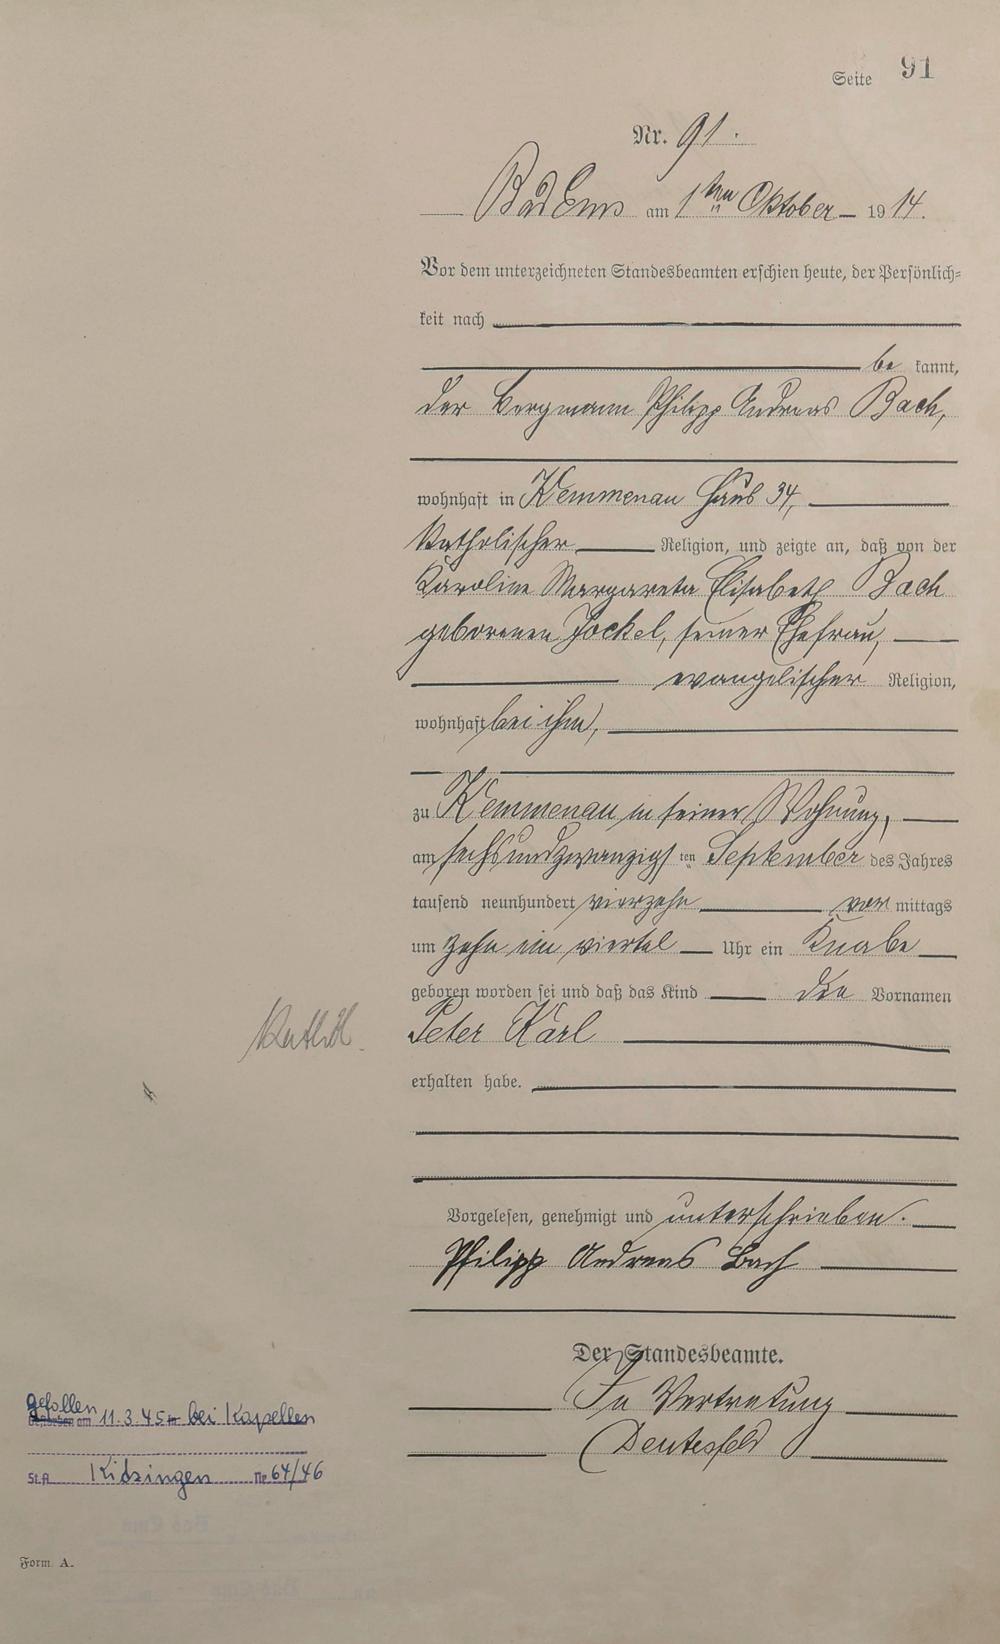 Seite 91
Nr. 91.
Bad Ems am 1ten Oktober 1914.
Vor dem unterzeichneten Standesbeamten erschien heute, der Persönlich=
keit nach
be kannt,
der Bergmann Philipp Andreas Bach,
wohnhaft in Kemmenau Haus 34,
katholischer Religion, und zeigte an, daß von der
Karoline Margareta Elisabeth Bach
geborenen Jockel, seiner Ehefrau,
evangelischer Religion,
wohnhaft bei ihm,
zu Kemmenau in seiner Wohnung,
am sechsundzwanzigsten September des Jahres
tausend neunhundert vierzehn vor mittags
um zehn ein viertel Uhr ein Knabe
geboren worden sei und daß das Kind die Vornamen
Peter Karl
erhalten habe.
Vorgelesen, genehmigt und unterschrieben.
Philipp Andreas Bach
Der Standesbeamte.
In Vertretung
gefallen am 11.3.45 bei Kapellen
St.A. Kitzingen Nr 64/46
Form. A.